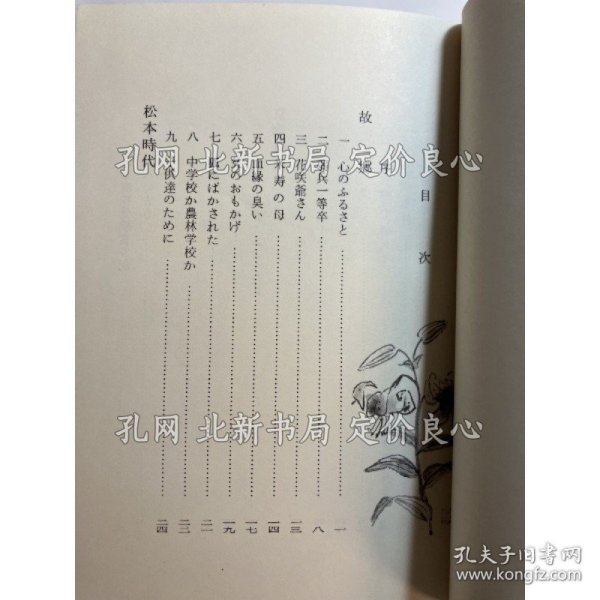 目次
序
故郷
一 心のふるさと 一
二 兵一等卒 八
三 花咲爺さん 一三
四 寿の母 一四
五 縁の臭い 一七
六 のおもかげ 一九
七 にばかされた 二一
八 中学校か農林学校か 二二
九 子供達のために 二四
松本時代
孔网 北新书局 定价良心
孔网 北新书局 定价良心
孔夫子旧书网
www.kongfz.com